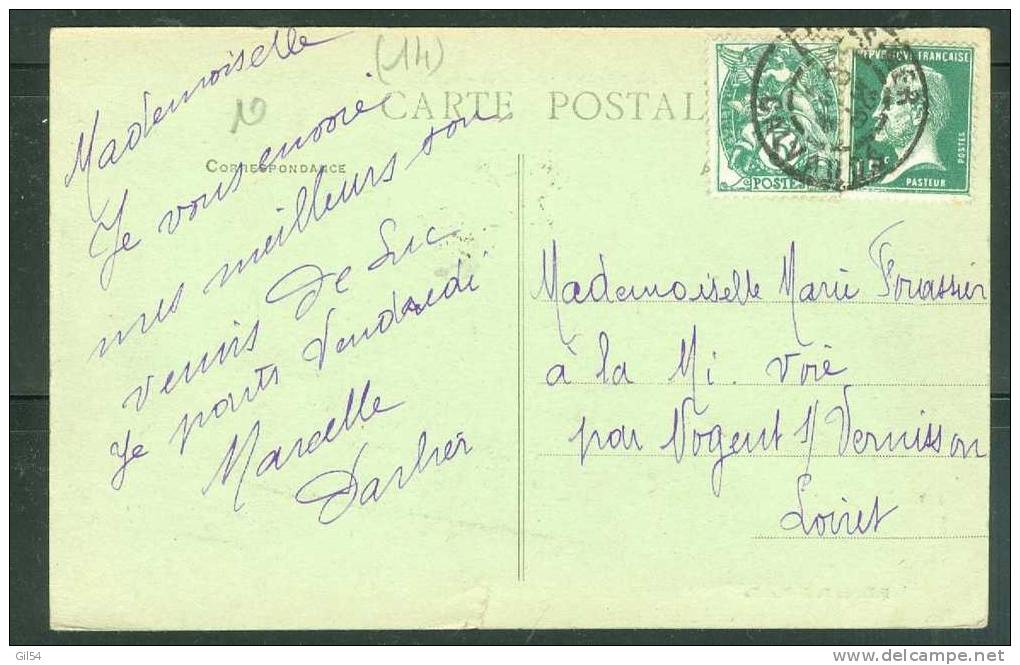 (14)
CARTE POSTAL
CORRESPONDANCE
Mademoiselle
Je vous envoie
mes meilleurs sou-
venirs de Luc
Je parts Vendredi
Marcelle
RÉPUBLIQUE FRANÇAISE
POSTES
15c
PASTEUR
POSTES
Mademoiselle Marie Fouassier
à la Mi. Voie
par Nogent s/ Vernisson
Loiret
Gil54
delcampe.net